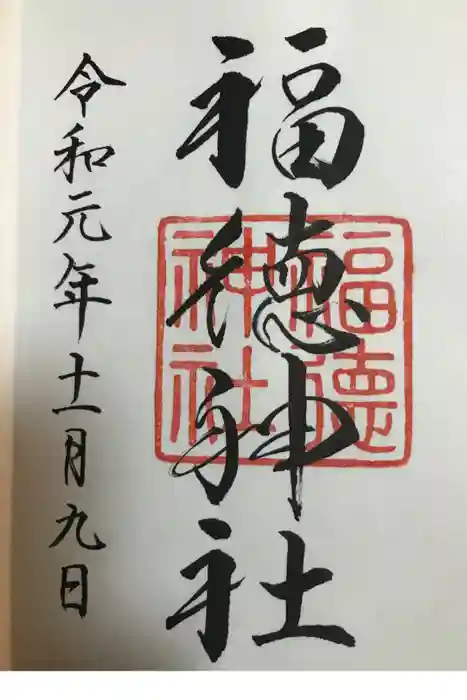 福徳神社
令和元年十一月九日
福徳
神社